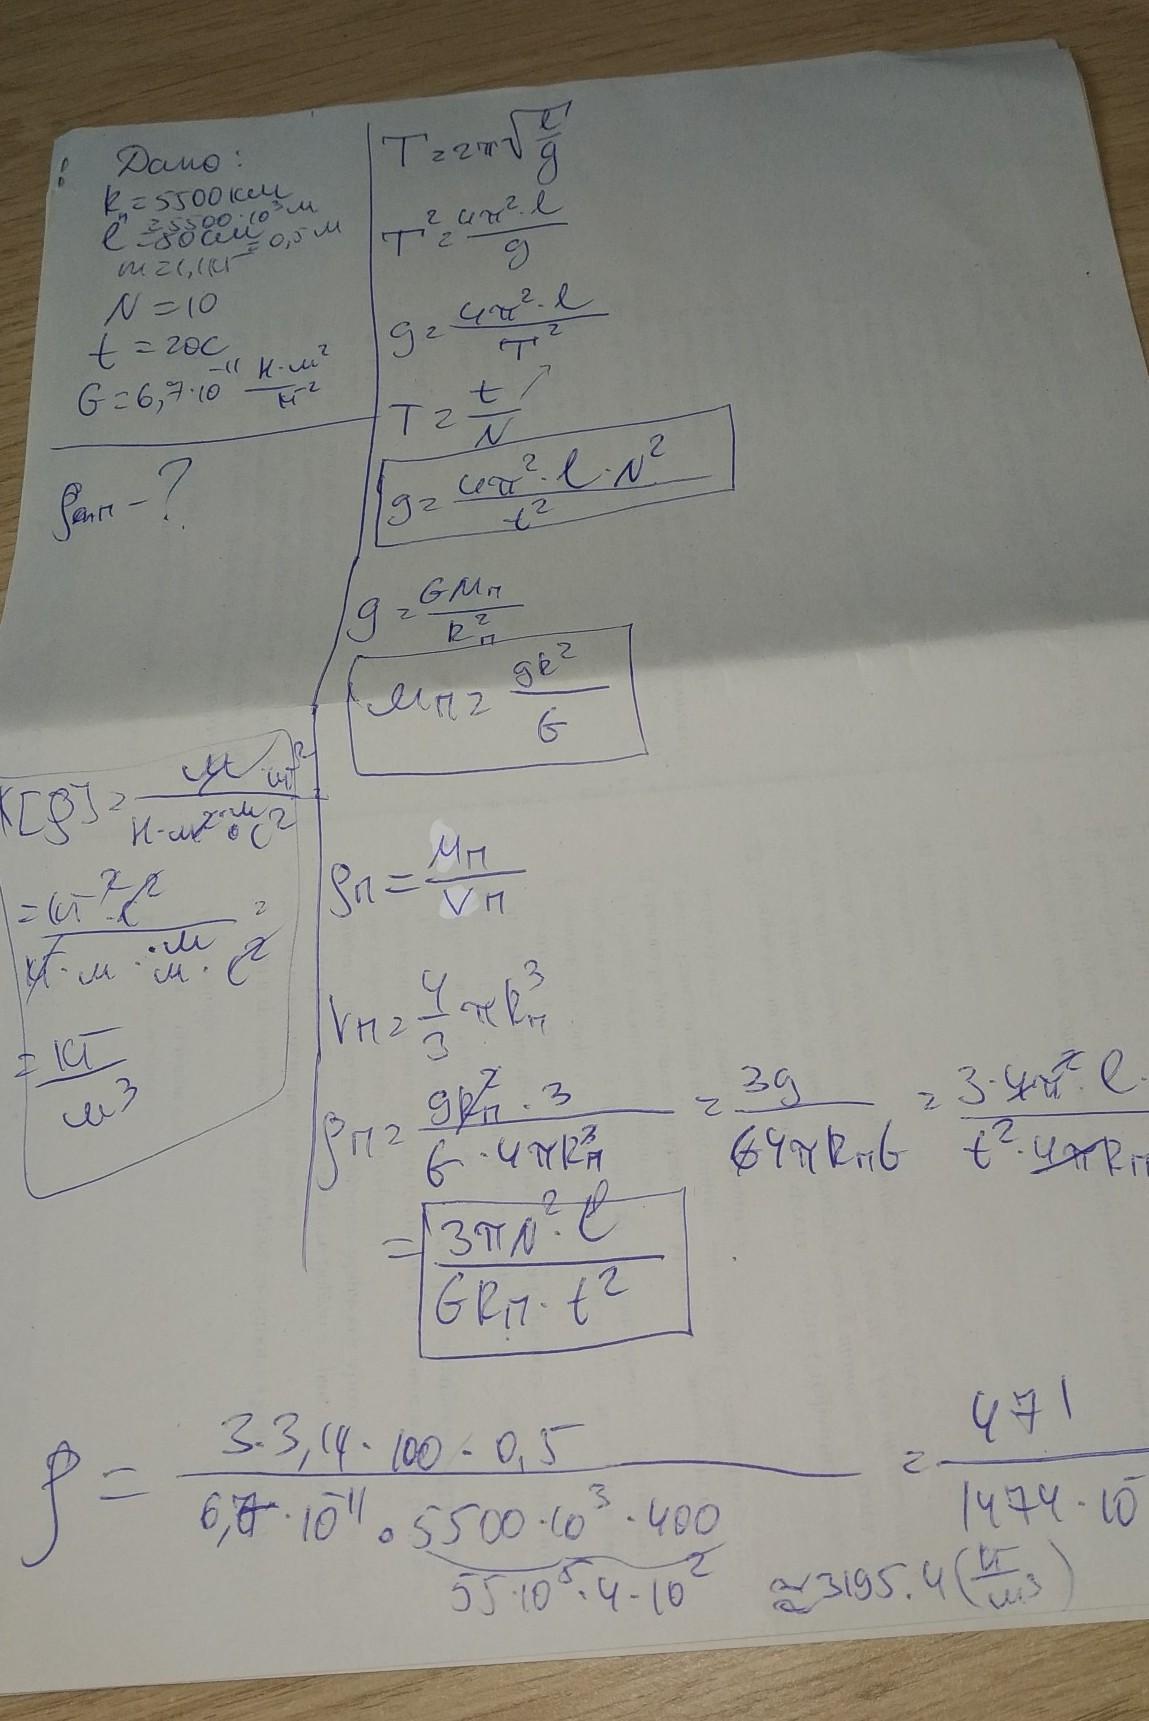 ! Дано:
R_п = 5500 км
= 5500·10³ м
l = 50 см = 0,5 м
m = 1,1 кг
N = 10
t = 20с
G = 6,7·10⁻¹¹ Н·м²/кг²
ρ_ср п - ?
T = 2π√(l/g)
T² = 4π²·l/g
g = 4π²·l/T²
T = t/N
g = 4π²·l·N²/t²
g = GM_п/R_п²
M_п = gR²/G
[ρ] = м·кг²/Н·м²·м·с²
= кг²·с²/кг·м·м·м·с² =
= кг/м³
ρ_п = M_п/V_п
V_п = 4/3 πR_п³
ρ_п = gR_п²·3/G·4πR_п³ = 3g/G4πR_пG = 3·4π²·l·/t²·4πR_п
= 3πN²·l/GR_п·t²
ρ = 3·3,14·100·0,5/6,7·10⁻¹¹·5500·10³·400 = 471/1474·10⁻
55·10⁵·4·10²
≈ 3195.4 (кг/м³)